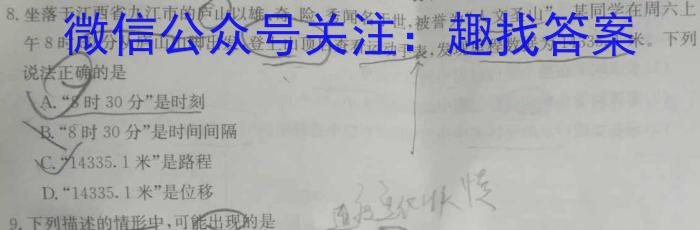 8.坐落于江西省九江市的庐山以雄、奇、险、秀闻名于世,被誉为“人文圣山”。某同学在周六上
午8时
微信公众号关注：趣找答案
米。下列
说法正确的是
A.“8时30分”是时刻
B.“8时30分”是时间间隔
C.“14335.1米”是路程
D.“14335.1米”是位移
9.下列描述的情形中,可能出现的是